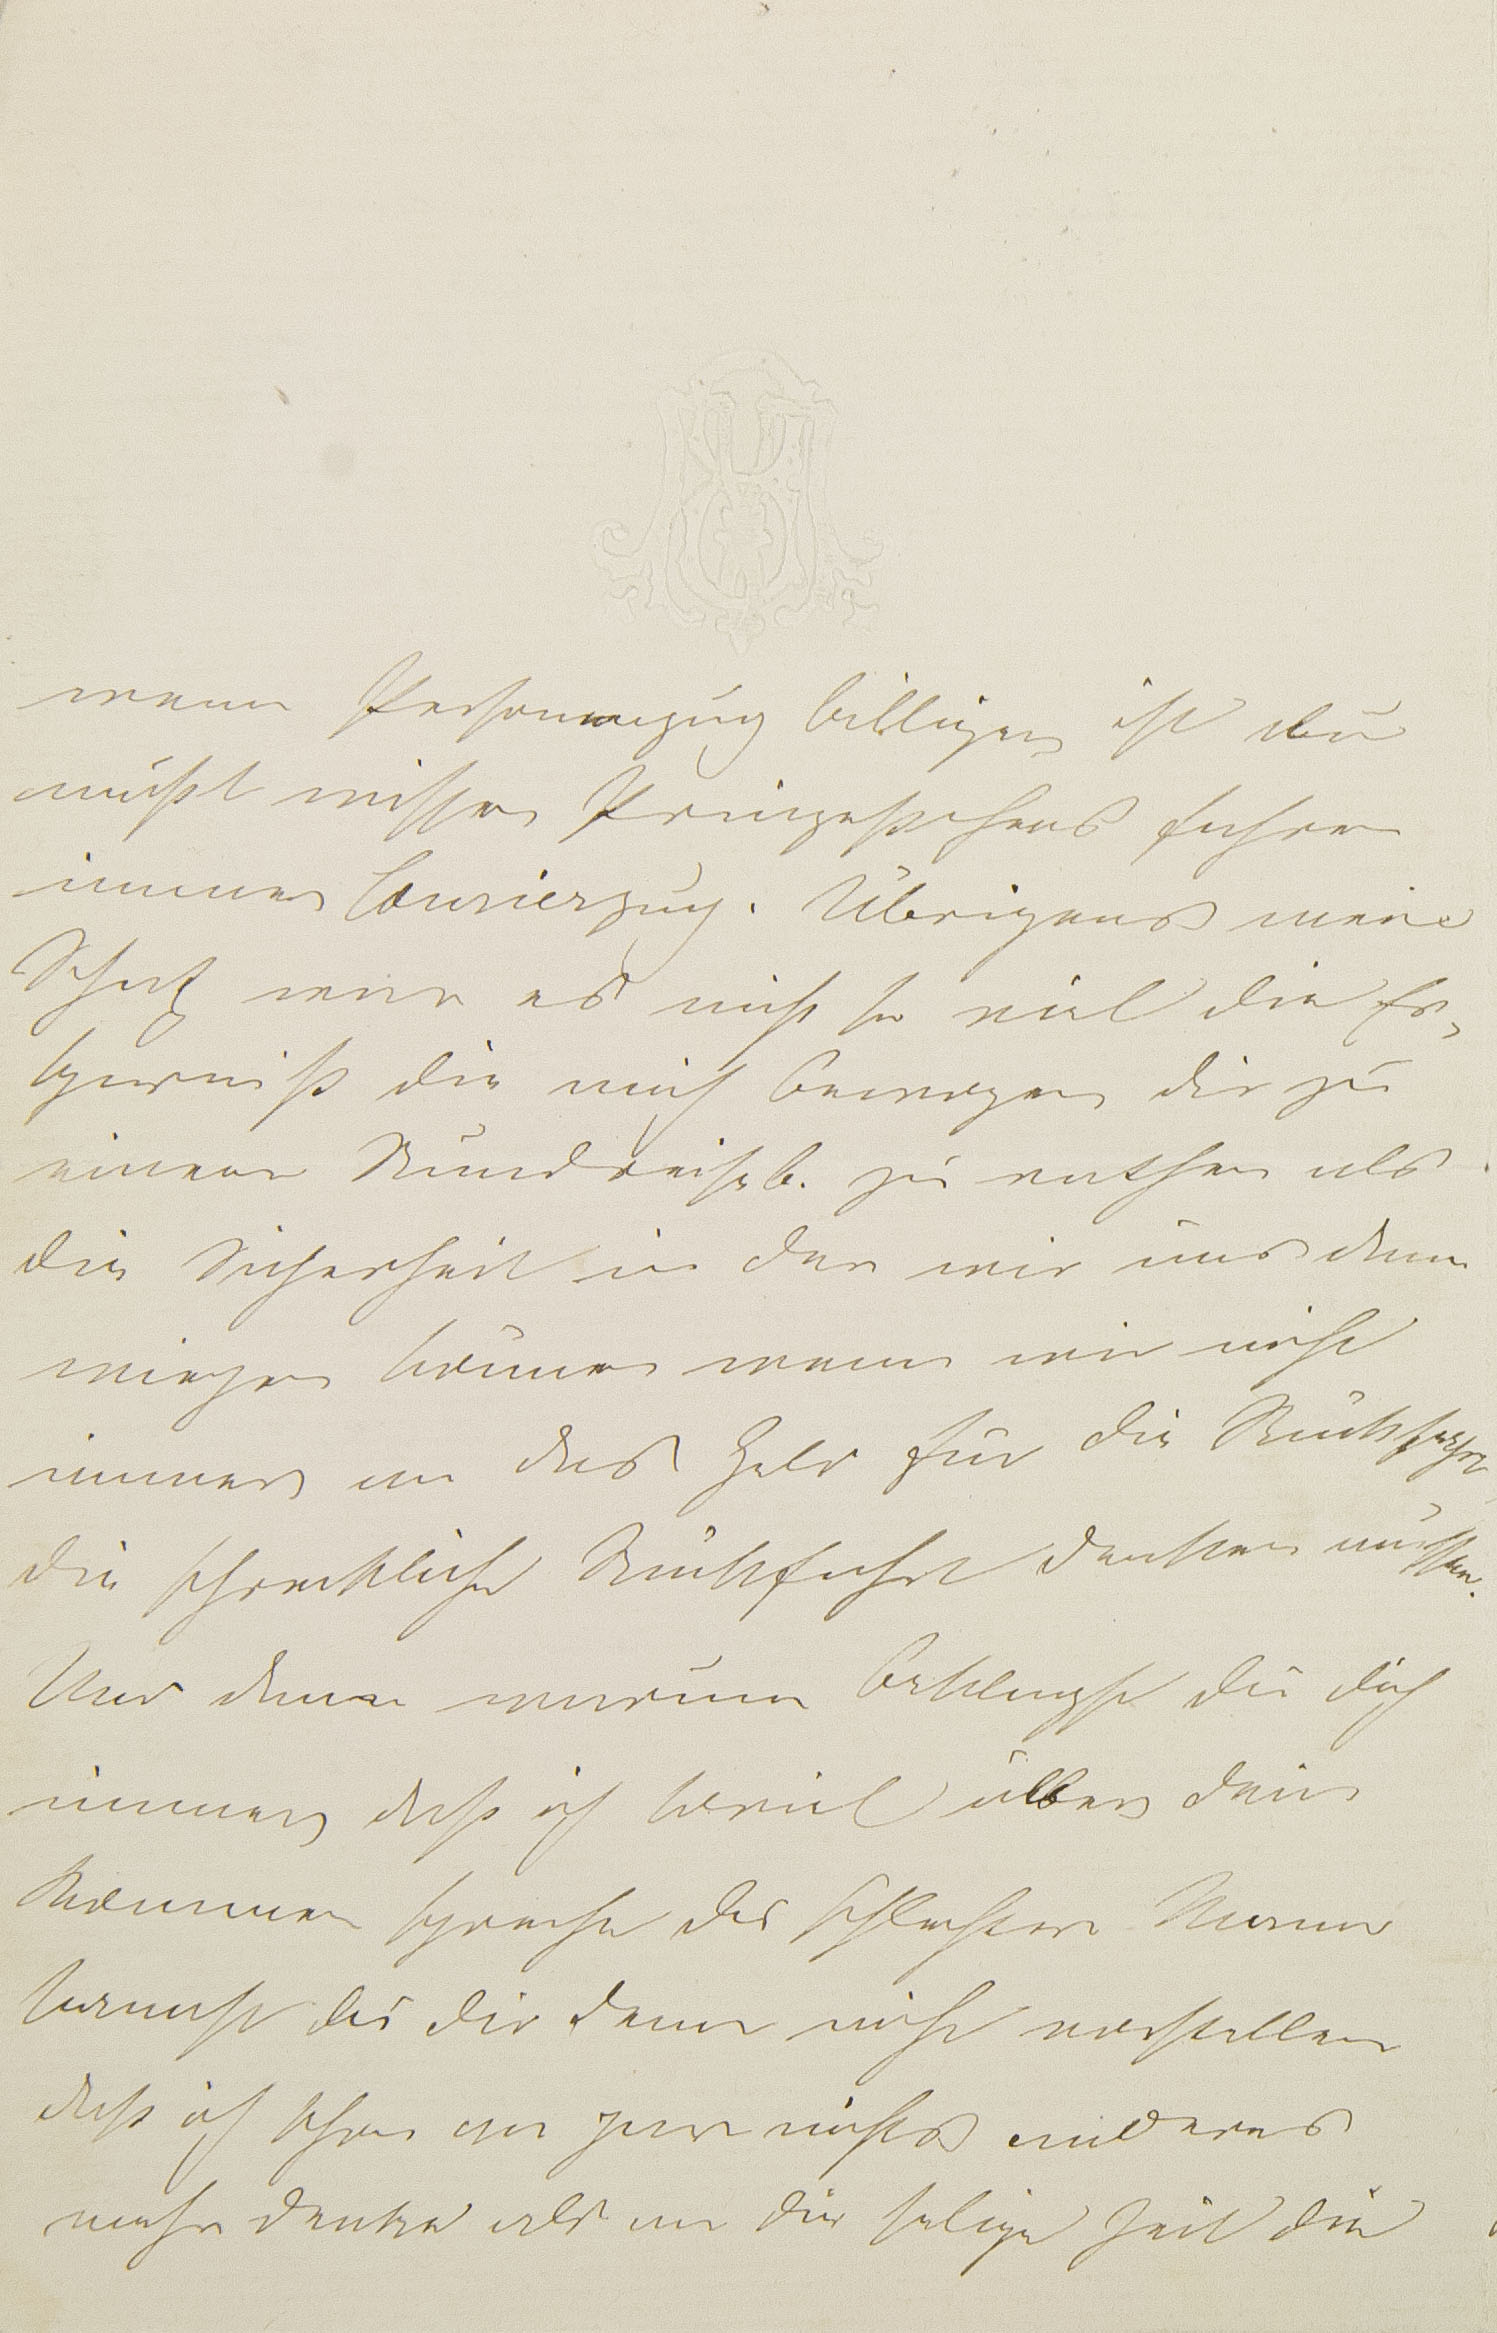 wenn Personenzug billiger ist du
mußt wissen Prinzeßchens fahren
immer Courierzug. Übrigens mein
Schatz war es nicht so viel die Er„
sparniß die mich bewogen dir zu
einem Rundreiseb. zu rathen als
die Sicherheit in der wir uns dann
wiegen können wenn wir nicht
immer an das Geld für die Rückfahrt
die schreckliche Rückfahrt denken müssen.
Und dann warum beklagst du dich
immer daß ich soviel über dein
Kommen spreche du schlechter Mann
kannst du dir denn nicht vorstellen
daß ich schon an gar nichts anderes
mehr denke als an die selige Zeit die